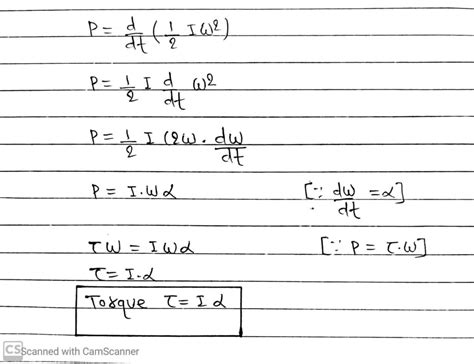 P = d/dt (1/2 Iω2)
P = 1/2 I d/dt ω2
P = 1/2 I (2ω . dω/dt
P = I.ωα [∵ dω/dt = α]
τω = Iωα [∵ P = τ.ω]
τ = I.α
Torque τ = Iα
CS Scanned with CamScanner